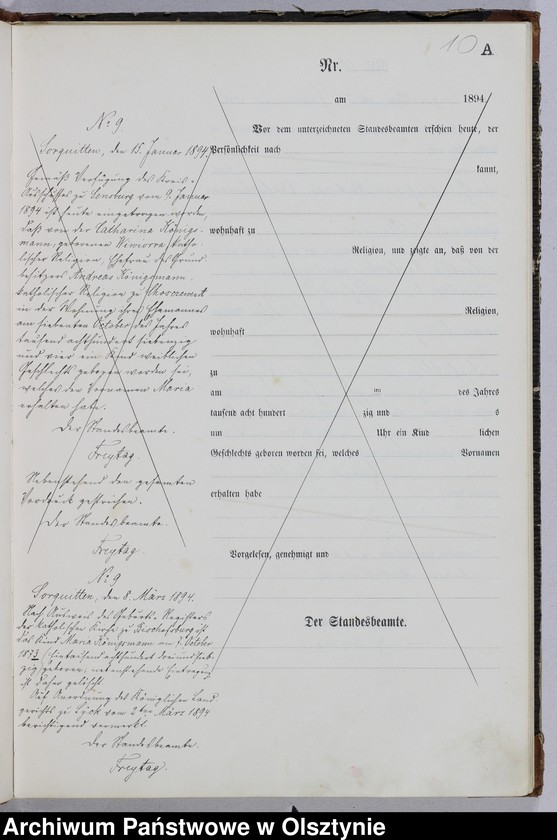 10 A
Nr.
am 1894
Vor dem unterzeichneten Standesbeamten erschien heute, der
Persönlichkeit nach
kannt,
wohnhaft zu
Religion, und zeigte an, daß von der
Religion,
wohnhaft
zu
am im des Jahres
tausend acht hundert zig und s
um Uhr ein Kind lichen
Geschlechts geboren worden sei, welches Vornamen
erhalten habe
Vorgelesen, genehmigt und
Der Standesbeamte.
No 9
Sorquitten, den 15. Januar 1894.
Gemäß Verfügung des Kreis-
Ausschusses zu Sensburg vom 9. Januar
1894 ist heute eingetragen worden,
daß von der Catharina Königs-
mann, geborenen Wiwiorra, katho-
lischer Religion, Ehefrau des Grund-
besitzers Andreas Königsmann,
katholischer Religion zu
in der Wohnung ihres Ehemannes
am siebenten October des Jahres
tausend achthundert siebenzig
und vier ein Kind weiblichen
Geschlechts geboren worden sei,
welches den Vornamen Maria
erhalten habe.
Der Standesbeamte.
Freytag.
Nebenstehend den gesamten
Vordruck gestrichen.
Der Standesbeamte.
Freytag.
No 9
Sorquitten, den 8. März 1894.
Nach Ausweis des Geburts-Registers
der katholischen Kirche zu Bischofsburg ist
das Kind Maria Königsmann am 7. October
1873 (Eintausend achthundert dreiundsieb-
zig) geboren, nebenstehende Eintragung
ist daher gelöscht.
Auf Anordnung des Königlichen Land-
gerichts zu Lyck vom 2ten März 1894
berichtigend vermerkt.
Der Standesbeamte.
Freytag.
Archiwum Państwowe w Olsztynie